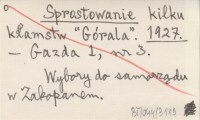 Sprostowanie kilku
kłamstw "Górala". 1927.
– Gazda 1, nr 3.
Wybory do samorządu
w Zakopanem.